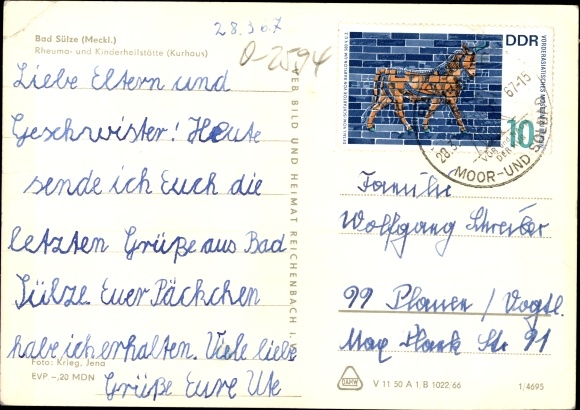 28.3 67
Bad Sülze (Meckl.)
Rheuma- und Kinderheilstätte (Kurhaus)
0-2594
Liebe Eltern und
Geschwister! Heute
sende ich Euch die
letzten Grüße aus Bad
Sülze Euer Päckchen
habe ich erhalten. Viele liebe
Grüße Eure Ute
Foto: Krieg, Jena
EVP -,20 MDN
VEB BILD UND HEIMAT REICHENBACH i. V.
DDR
VORDERASIATISCHES MUSEUM BERLIN
10
28.3. 67-15
MOOR- UND SOLBAD
Familie
Wolfgang Schreiber
99 Plauen / Vogtl.
Max Plank Str 91
V 11 50 A 1/B 1022 66
1/4695